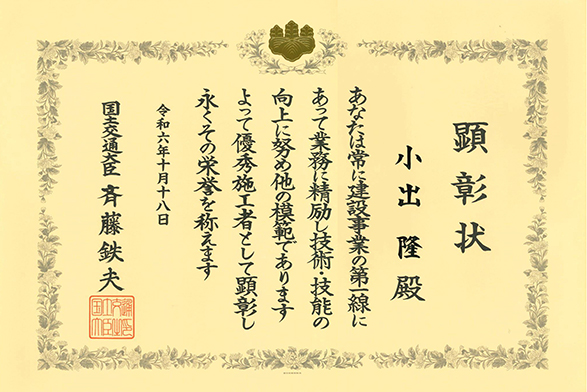 顕彰状
小出 隆 殿
あなたは常に建設事業の第一線に
あって業務に精励し技術・技能の
向上に努め他の模範であります
よって優秀施工者として顕彰し
永くその栄誉を称えます
令和六年十月十八日
国土交通大臣 斉藤鉄夫